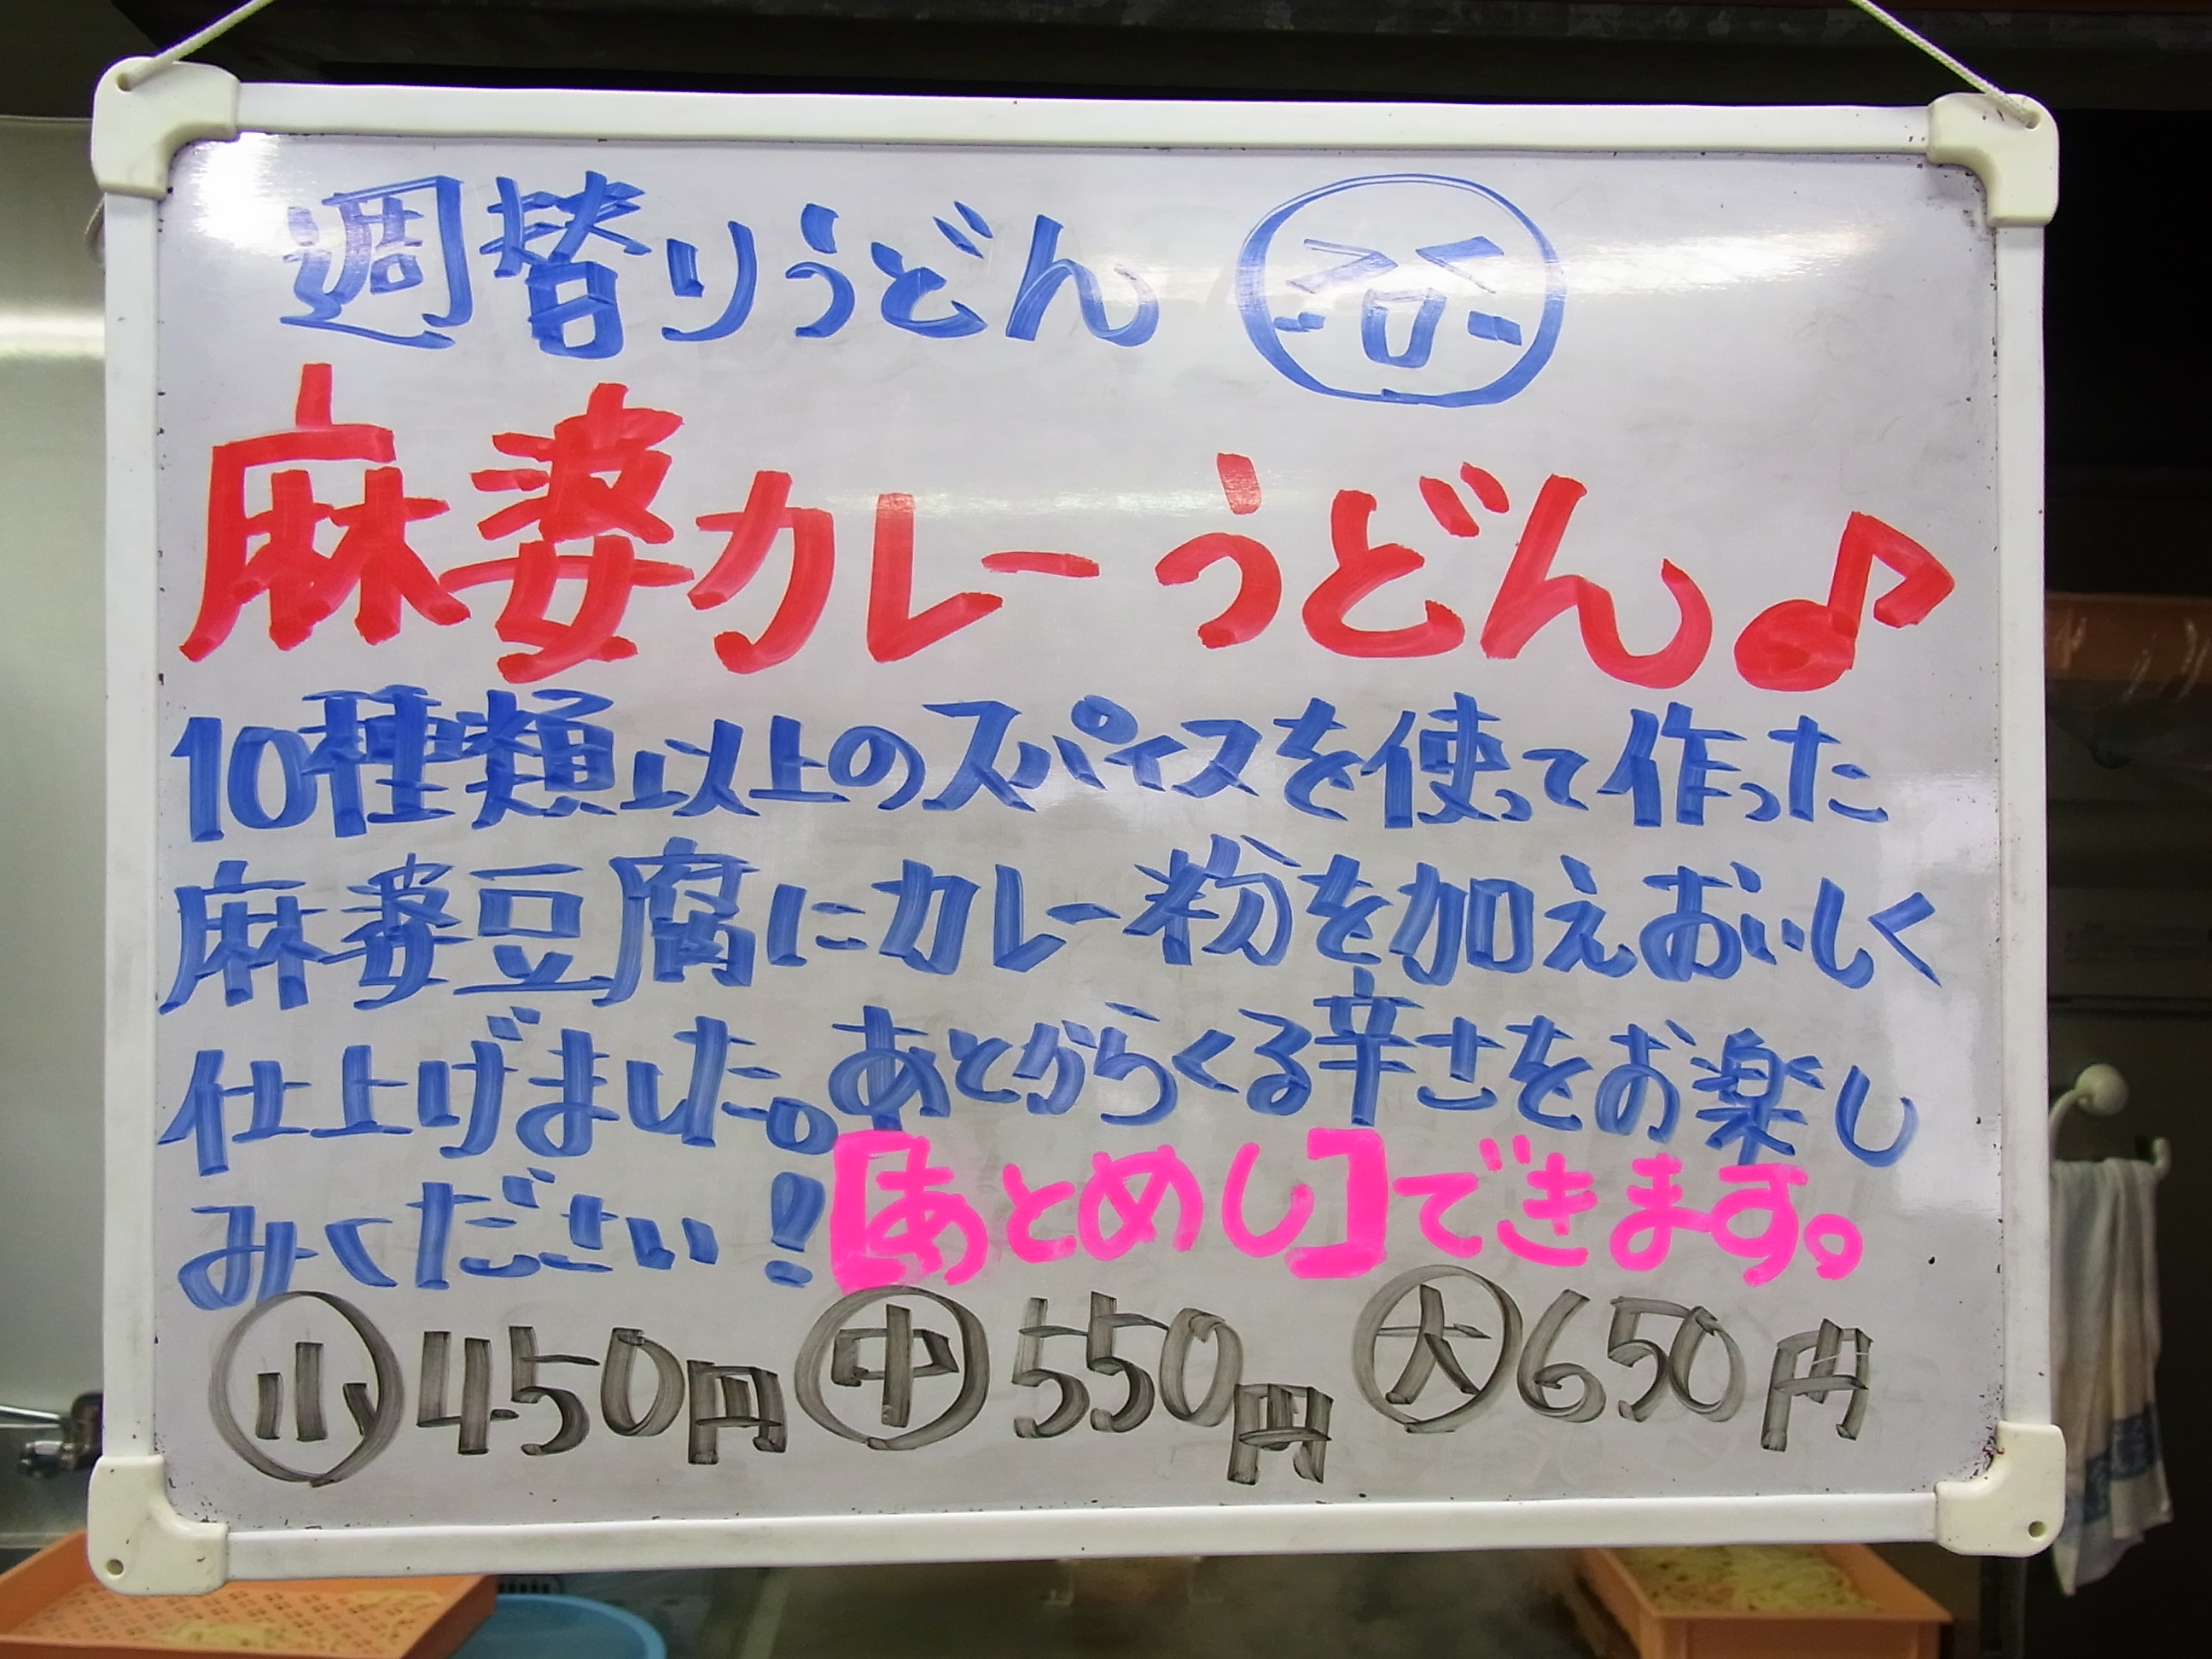 週替りうどん
麻婆カレーうどん♪
10種類以上のスパイスを使って作った
麻婆豆腐にカレー粉を加えおいしく
仕上げました。あとからくる辛さをお楽し
みください!【あとめし】できます。
小 450円 中 550円 大 650円